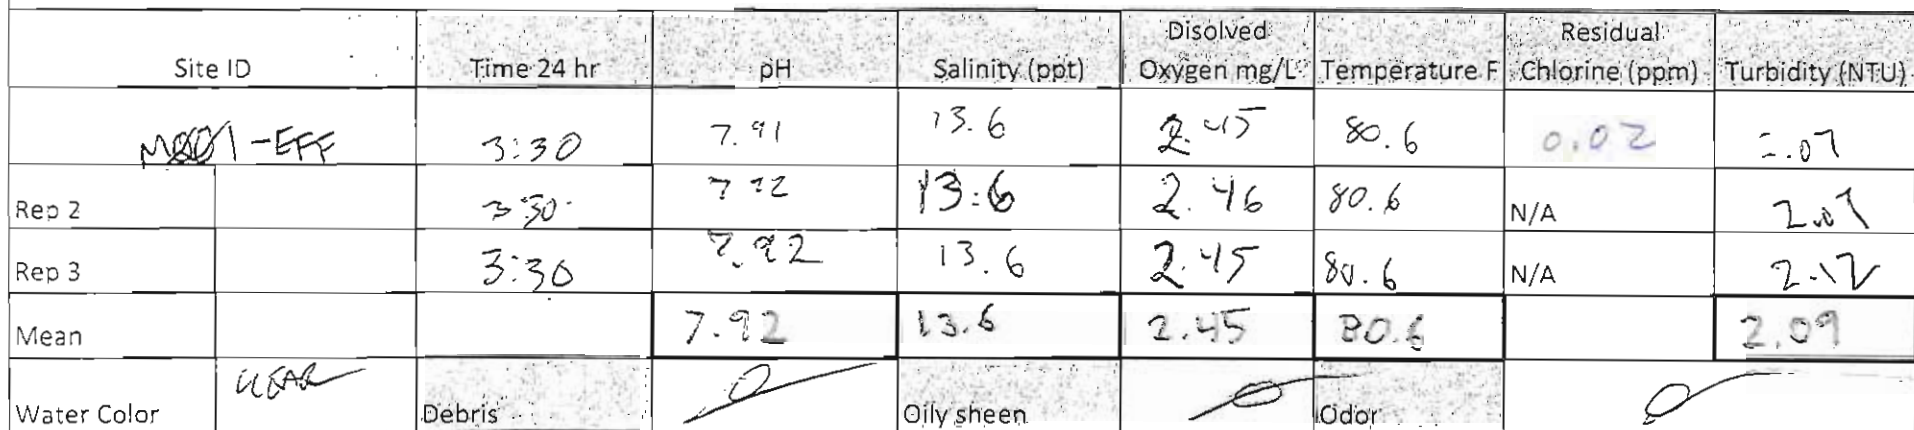 Site ID Time 24 hr pH Salinity (ppt) Disolved Oxygen mg/L Temperature F Residual Chlorine (ppm) Turbidity (NTU)
-EFF 3:30 7.91 13.6 2.45 80.6 0.02
Rep 2 3:30 13.6 2.46 80.6 N/A 2.07
Rep 3 3:30 7.92 13.6 2.45 80.6 N/A 2.12
Mean 7.92 13.6 2.45 80.6 2.09
Water Color CLEAR Debris Oily sheen Odor